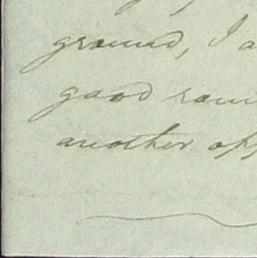 ground, I a
good
another opp